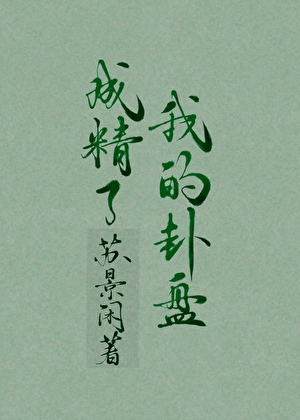 我的卦盘
成精了
苏景闲著